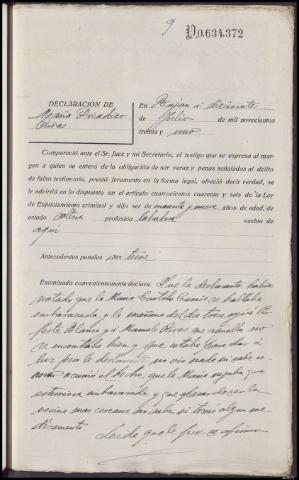 9
D0.634.372
DECLARACIÓN DE
María
Rivas
En
de Julio de mil novecientos
treinta y uno
Compareció ante el Sr. Juez y mi Secretario, el testigo que se expresa al mar-
gen a quien se enteró de la obligación de ser veraz y penas señaladas al delito
de falso testimonio, prestó juramento en la forma legal, ofreció decir verdad, se
le advirtió en lo dispuesto en el artículo cuatrocientos cuarenta y seis de la Ley
de Enjuiciamiento criminal y dijo ser de años de edad, de
estado soltera profesión labradora vecino de
aquí
Antecedentes penales no tiene
Examinado convenientemente declara. Que la declarante había
notado que la María se hallaba
embarazada, y la mañana del día tres oyó a
Blanco y a Manuel Rivas que aquella no
se encontraba bien y que estaba para dar a
luz pero la declarante no vió nada ni sabe co-
mo ocurrió el hecho, que la María negaba que
estuviera embarazada, y que
vecina mas cercana no sabe si tomó algun me-
dicamento.
Leida que le fue se afirma